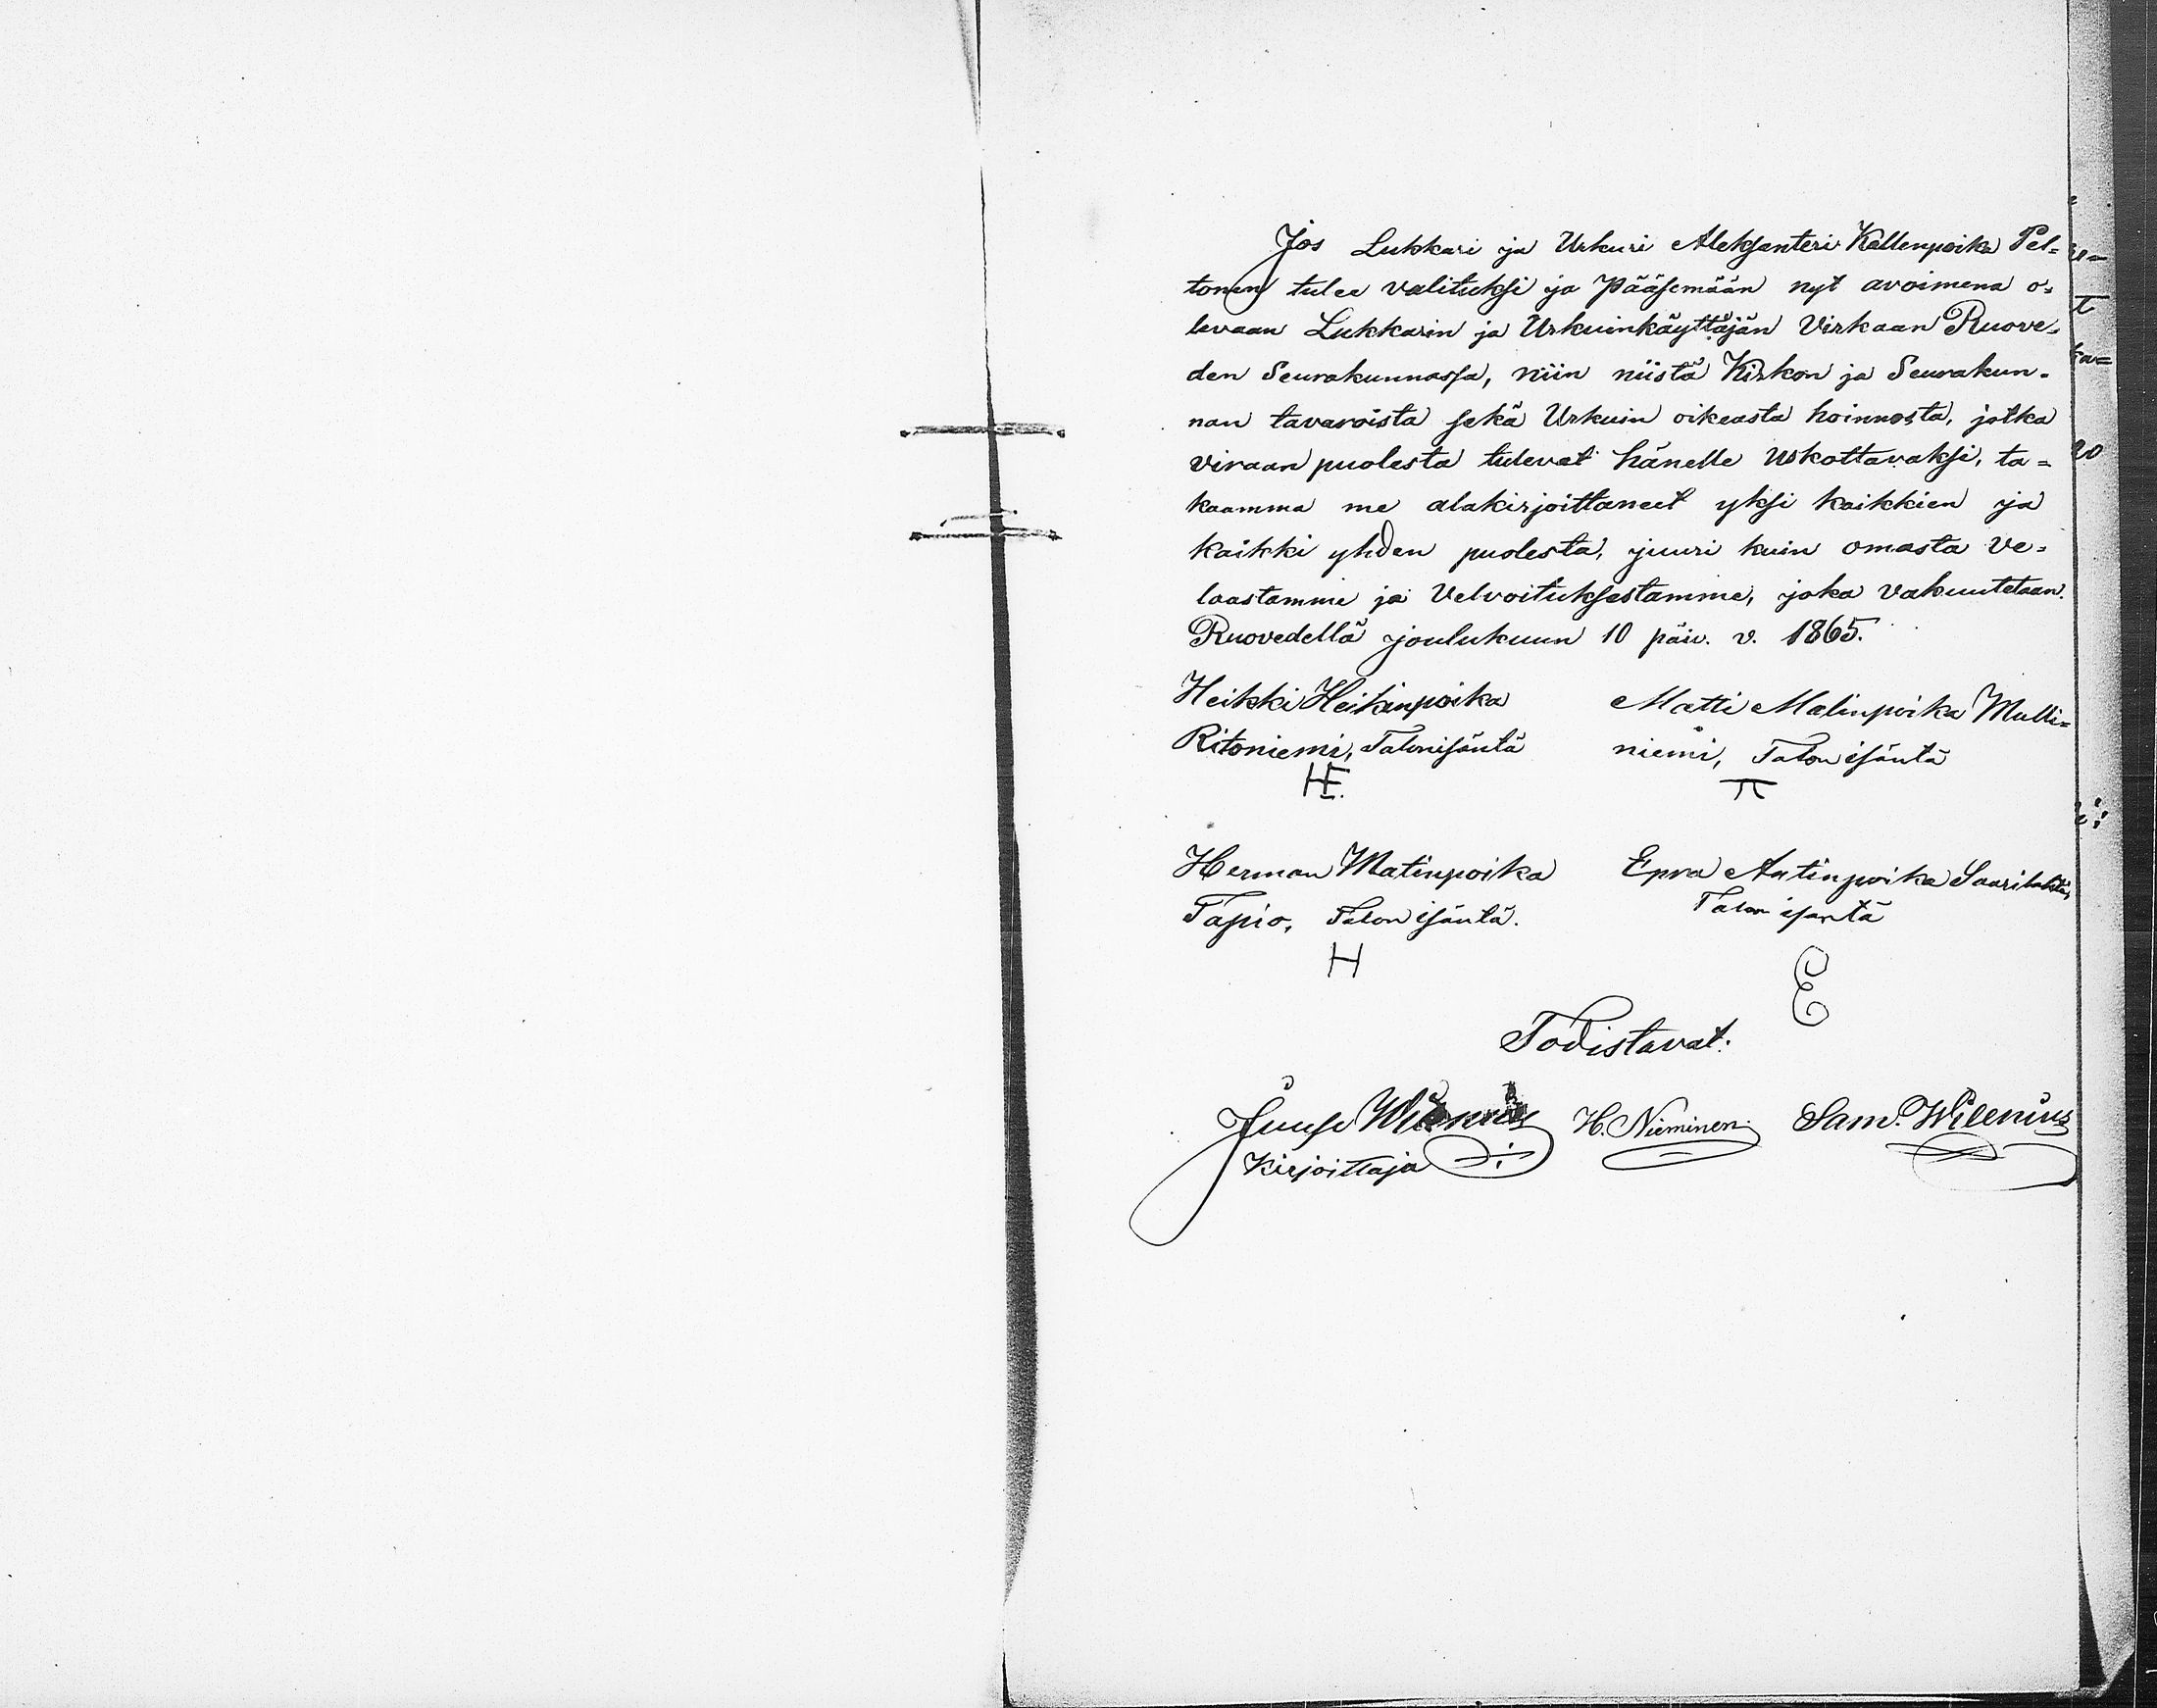 Jos Lukkari ja Urkuri Aleksanteri Kallenpoika Pel=
tonen tulee valituksi ja Pääsemään nyt avoimena o=
levaan Lukkarin ja Urkuinkäyttäjän Virkaan Ruove=
den Seurakunnassa, niin niistä Kirkon ja Seurakun=
nan tavaroista sekä Urkuin oikeasta hoinnosta, jotka
viraan puolesta tulevat hänelle uskottavaksi, ta=
kaamma me alakirjoittaneet yksi kaikkien ja
kaikki yhden puolesta, juuri kuin omasta ve=
laastamme ja Velvoituksestamme, joka vakuutetaan.
Ruovedellä joulukuun 10 päiv. v. 1865.
Heikki Heikinpoika
Ritoniemi, Talonisäntä
HE.
Matti Matinpoika Mulli=
niemi, Talon isäntä
Herman Matinpoika
Tapio, Talon isäntä.
H
Epra Antinpoika Saarilahti,
Talon isäntä
E
Todistavat:
Juuse
Kirjoittaja
H. Nieminen
Sam. Wilenius